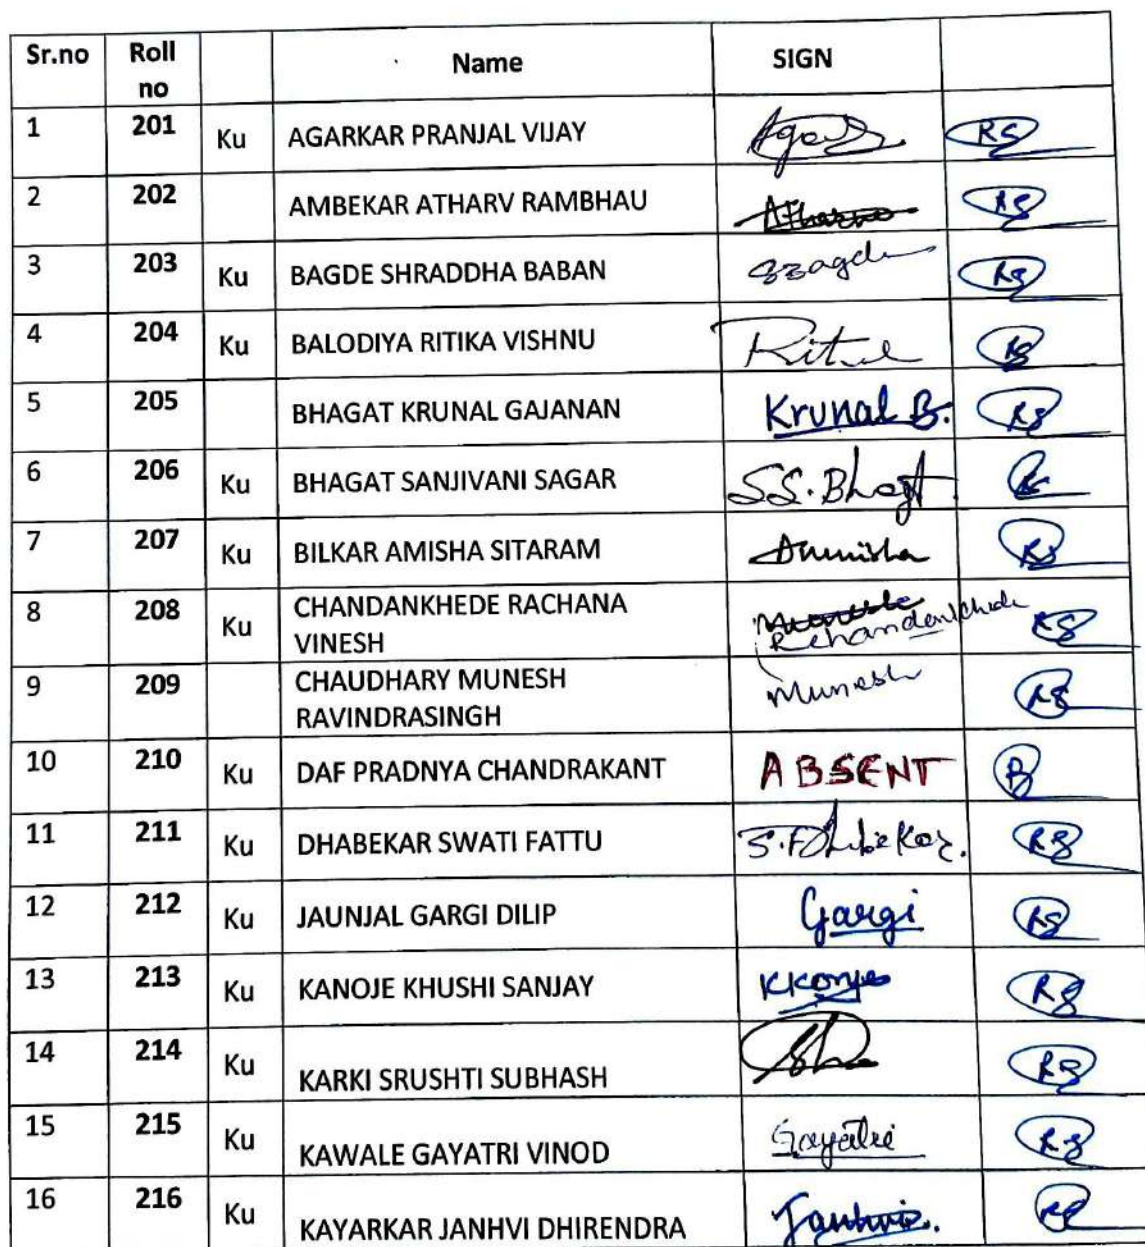 Sr.no Roll no Name SIGN
1 201 Ku AGARKAR PRANJAL VIJAY RS
2 202 AMBEKAR ATHARV RAMBHAU Atharva RS
3 203 Ku BAGDE SHRADDHA BABAN RS
4 204 Ku BALODIYA RITIKA VISHNU RS
5 205 BHAGAT KRUNAL GAJANAN Krunal B. RS
6 206 Ku BHAGAT SANJIVANI SAGAR S.S. Bhagt
7 207 Ku BILKAR AMISHA SITARAM RS
8 208 Ku CHANDANKHEDE RACHANA Munesh
VINESH Rchandankhede RS
9 209 CHAUDHARY MUNESH Munesh
RAVINDRASINGH RS
10 210 Ku DAF PRADNYA CHANDRAKANT ABSENT
11 211 Ku DHABEKAR SWATI FATTU S.F Dhabekar. RS
12 212 Ku JAUNJAL GARGI DILIP Gargi RS
13 213 Ku KANOJE KHUSHI SANJAY RS
14 214 Ku KARKI SRUSHTI SUBHASH RS
15 215 Ku KAWALE GAYATRI VINOD Gayatri RS
16 216 Ku KAYARKAR JANHVI DHIRENDRA Janhvi. RS